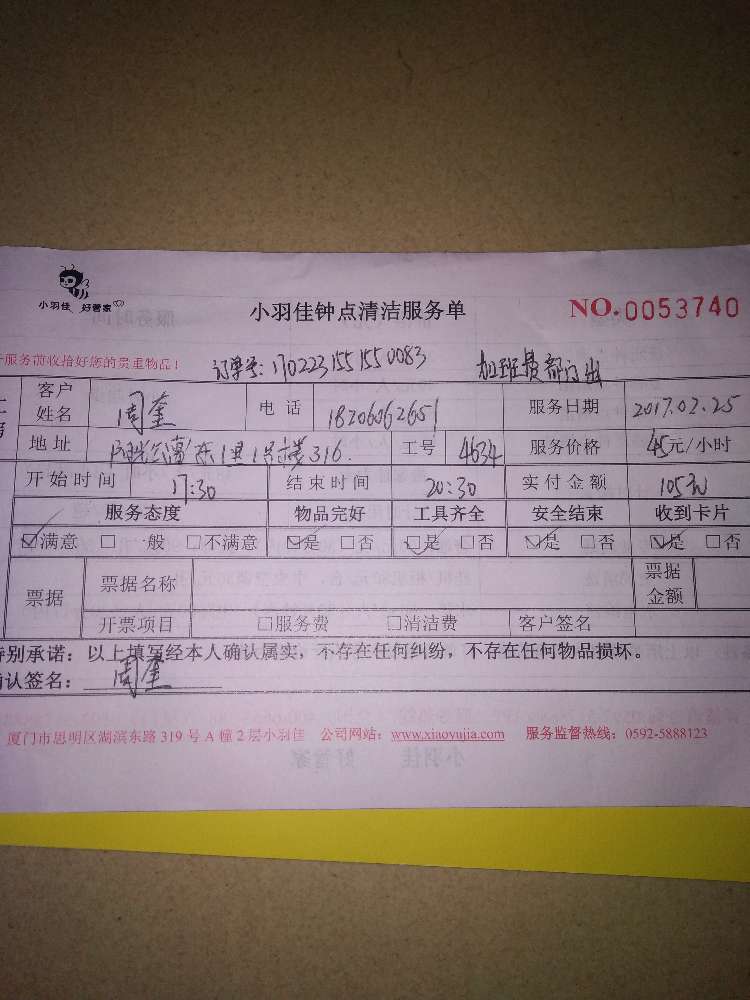 小羽佳 好管家
小羽佳钟点清洁服务单
NO.0053740
服务前收拾好您的贵重物品！
订单号：1702231551550083 加班费部门出
客户姓名 周奎 电话 18206062651 服务日期 2017.02.25
地址 1里1号楼316. 工号 4634 服务价格 45元/小时
开始时间 17:30 结束时间 20:30 实付金额 105元
服务态度 物品完好 工具齐全 安全结束 收到卡片
☑满意 □一般 □不满意 ☑是 □否 ☑是 □否 ☑是 □否 ☑是 □否
票据 票据名称 票据金额
开票项目 □服务费 □清洁费 客户签名
特别承诺：以上填写经本人确认属实，不存在任何纠纷，不存在任何物品损坏。
确认签名：周奎
厦门市思明区湖滨东路319号A幢2层小羽佳 公司网站：www.xiaoyujia.com 服务监督热线：0592-5888123